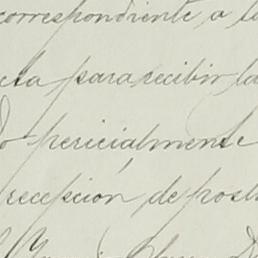 correspondiente a la
para recibir la
do pericialmente
recepción de post